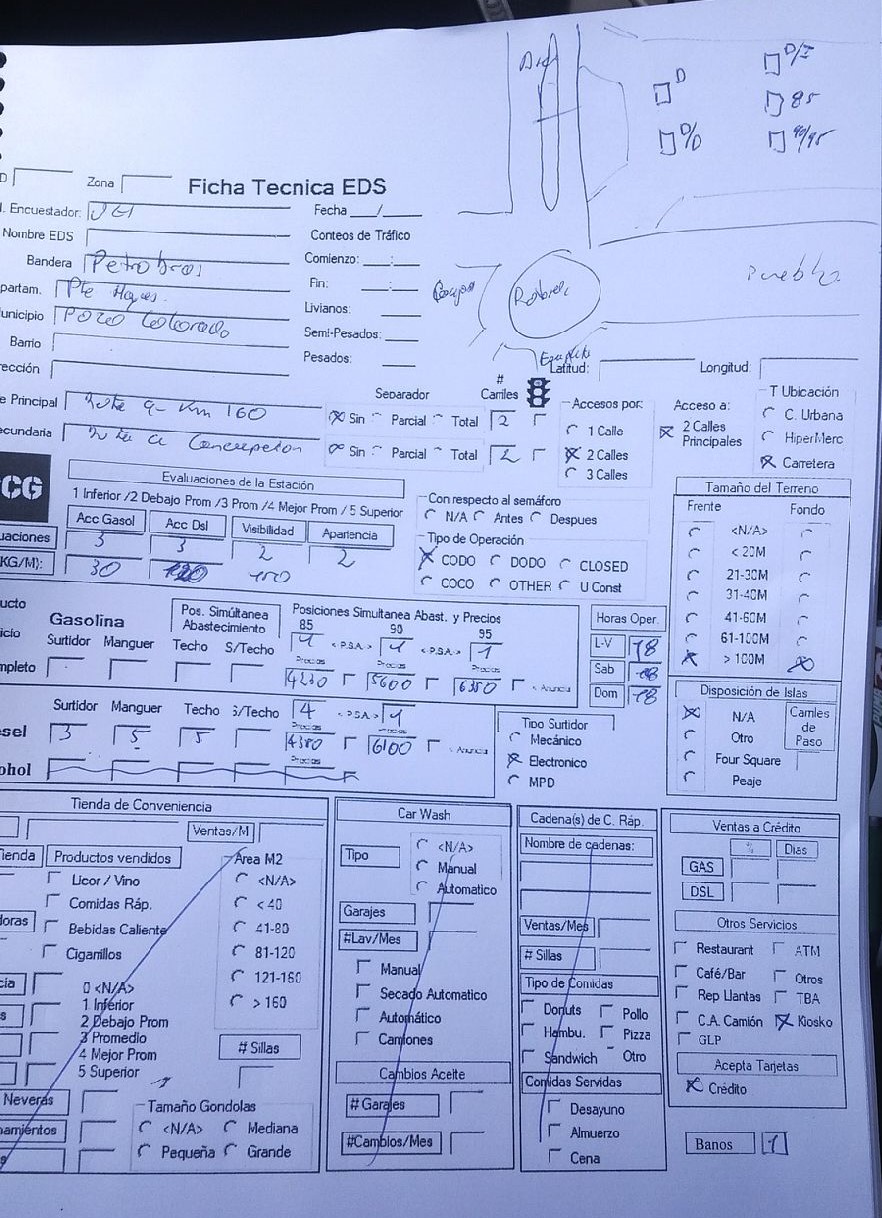 D/I
D
85
D/D
90/95
D
Zona
Ficha Tecnica EDS
l. Encuestador:
Fecha __/__
Nombre EDS
Conteos de Tráfico
Bandera Petrobras
Comienzo: __:__
partam. Pte Hayes.
Fin: __:__
unicipio Pozo Colorado
Livianos:
Barrio
Semi-Pesados:
rección
Pesados:
Pueblo
Latitud:
Longitud:
e Principal Ruta 9 - Km 160
ecundaria Ruta a Concepcion
Separador
# Carriles
Sin Parcial Total 2
Sin Parcial Total 2
Accesos por:
1 Calle
2 Calles
3 Calles
Acceso a:
2 Calles Principales
T Ubicación
C. Urbana
HiperMerc
Carretera
CG
Evaluaciones de la Estación
1 Inferior /2 Debajo Prom /3 Prom /4 Mejor Prom / 5 Superior
Acc Gasol Acc Dsl Visibilidad Apariencia
uaciones 3 3 2 2
KG/M): 30 120
Con respecto al semáforo
N/A Antes Despues
Tipo de Operación
CODO DODO CLOSED
COCO OTHER U Const
Tamaño del Terreno
Frente Fondo
<N/A>
< 20M
21-30M
31-40M
41-60M
61-100M
> 100M
ucto
icio
mpleto
Gasolina
Pos. Simúltanea Abastecimiento
Surtidor Manguer Techo S/Techo
Posiciones Simultanea Abast. y Precios
85 90 95
< P.S.A. > < P.S.A. >
Precios Precios Precios
4230 5600 6350 < Anuncia
Horas Oper.
L-V 18
Sab 18
Dom 18
sel
Surtidor Manguer Techo S/Techo
3 5 5
4 < P.S.A. >
4380 6100 < Anuncia
Precios
ohol
Tipo Surtidor
Mecánico
Electronico
MPD
Disposición de Islas
N/A
Otro
Four Square
Peaje
Carriles de Paso
Tienda de Conveniencia
Ventas/M
ienda
Productos vendidos
Licor / Vino
Comidas Ráp.
Bebidas Caliente
Cigarrillos
doras
Área M2
<N/A>
< 40
41-80
81-120
121-160
> 160
cia
s
0 <N/A>
1 Inferior
2 Debajo Prom
3 Promedio
4 Mejor Prom
5 Superior
# Sillas
Neveras
namientos
s
Tamaño Gondolas
<N/A> Mediana
Pequeña Grande
Car Wash
Tipo
<N/A>
Manual
Automatico
Garajes
#Lav/Mes
Manual
Secado Automatico
Automático
Camiones
Cambios Aceite
# Garajes
#Cambios/Mes
Cadena(s) de C. Ráp.
Nombre de cadenas:
Ventas/Mes
# Sillas
Tipo de Comidas
Donuts Pollo
Hambu. Pizza
Sandwich Otro
Comidas Servidas
Desayuno
Almuerzo
Cena
Ventas a Crédito
% Dias
GAS
DSL
Otros Servicios
Restaurant ATM
Café/Bar Otros
Rep Llantas TBA
C.A. Camión Kiosko
GLP
Acepta Tarjetas
Crédito
Banos 1